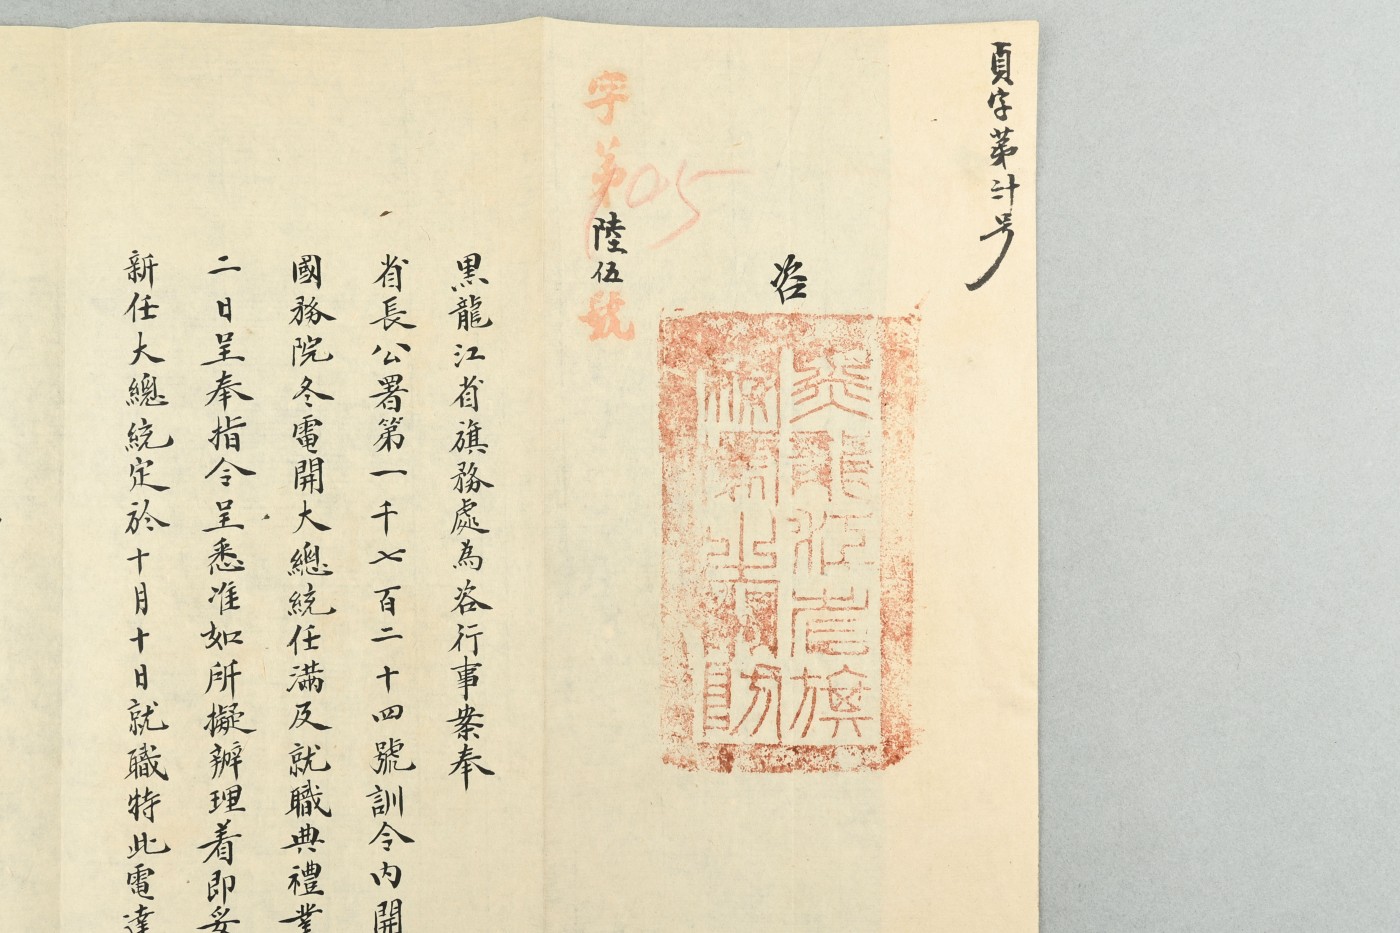 頁字第廿号
咨
黑龍江省旗務處之關防
字第陸伍號
105
黑龍江省旗務處為咨行事案奉
省長公署第一千七百二十四號訓令內開
國務院冬電開大總統任滿及就職典禮業
二日呈奉指令呈悉准如所擬辦理着即妥
新任大總統定於十月十日就職特此電達